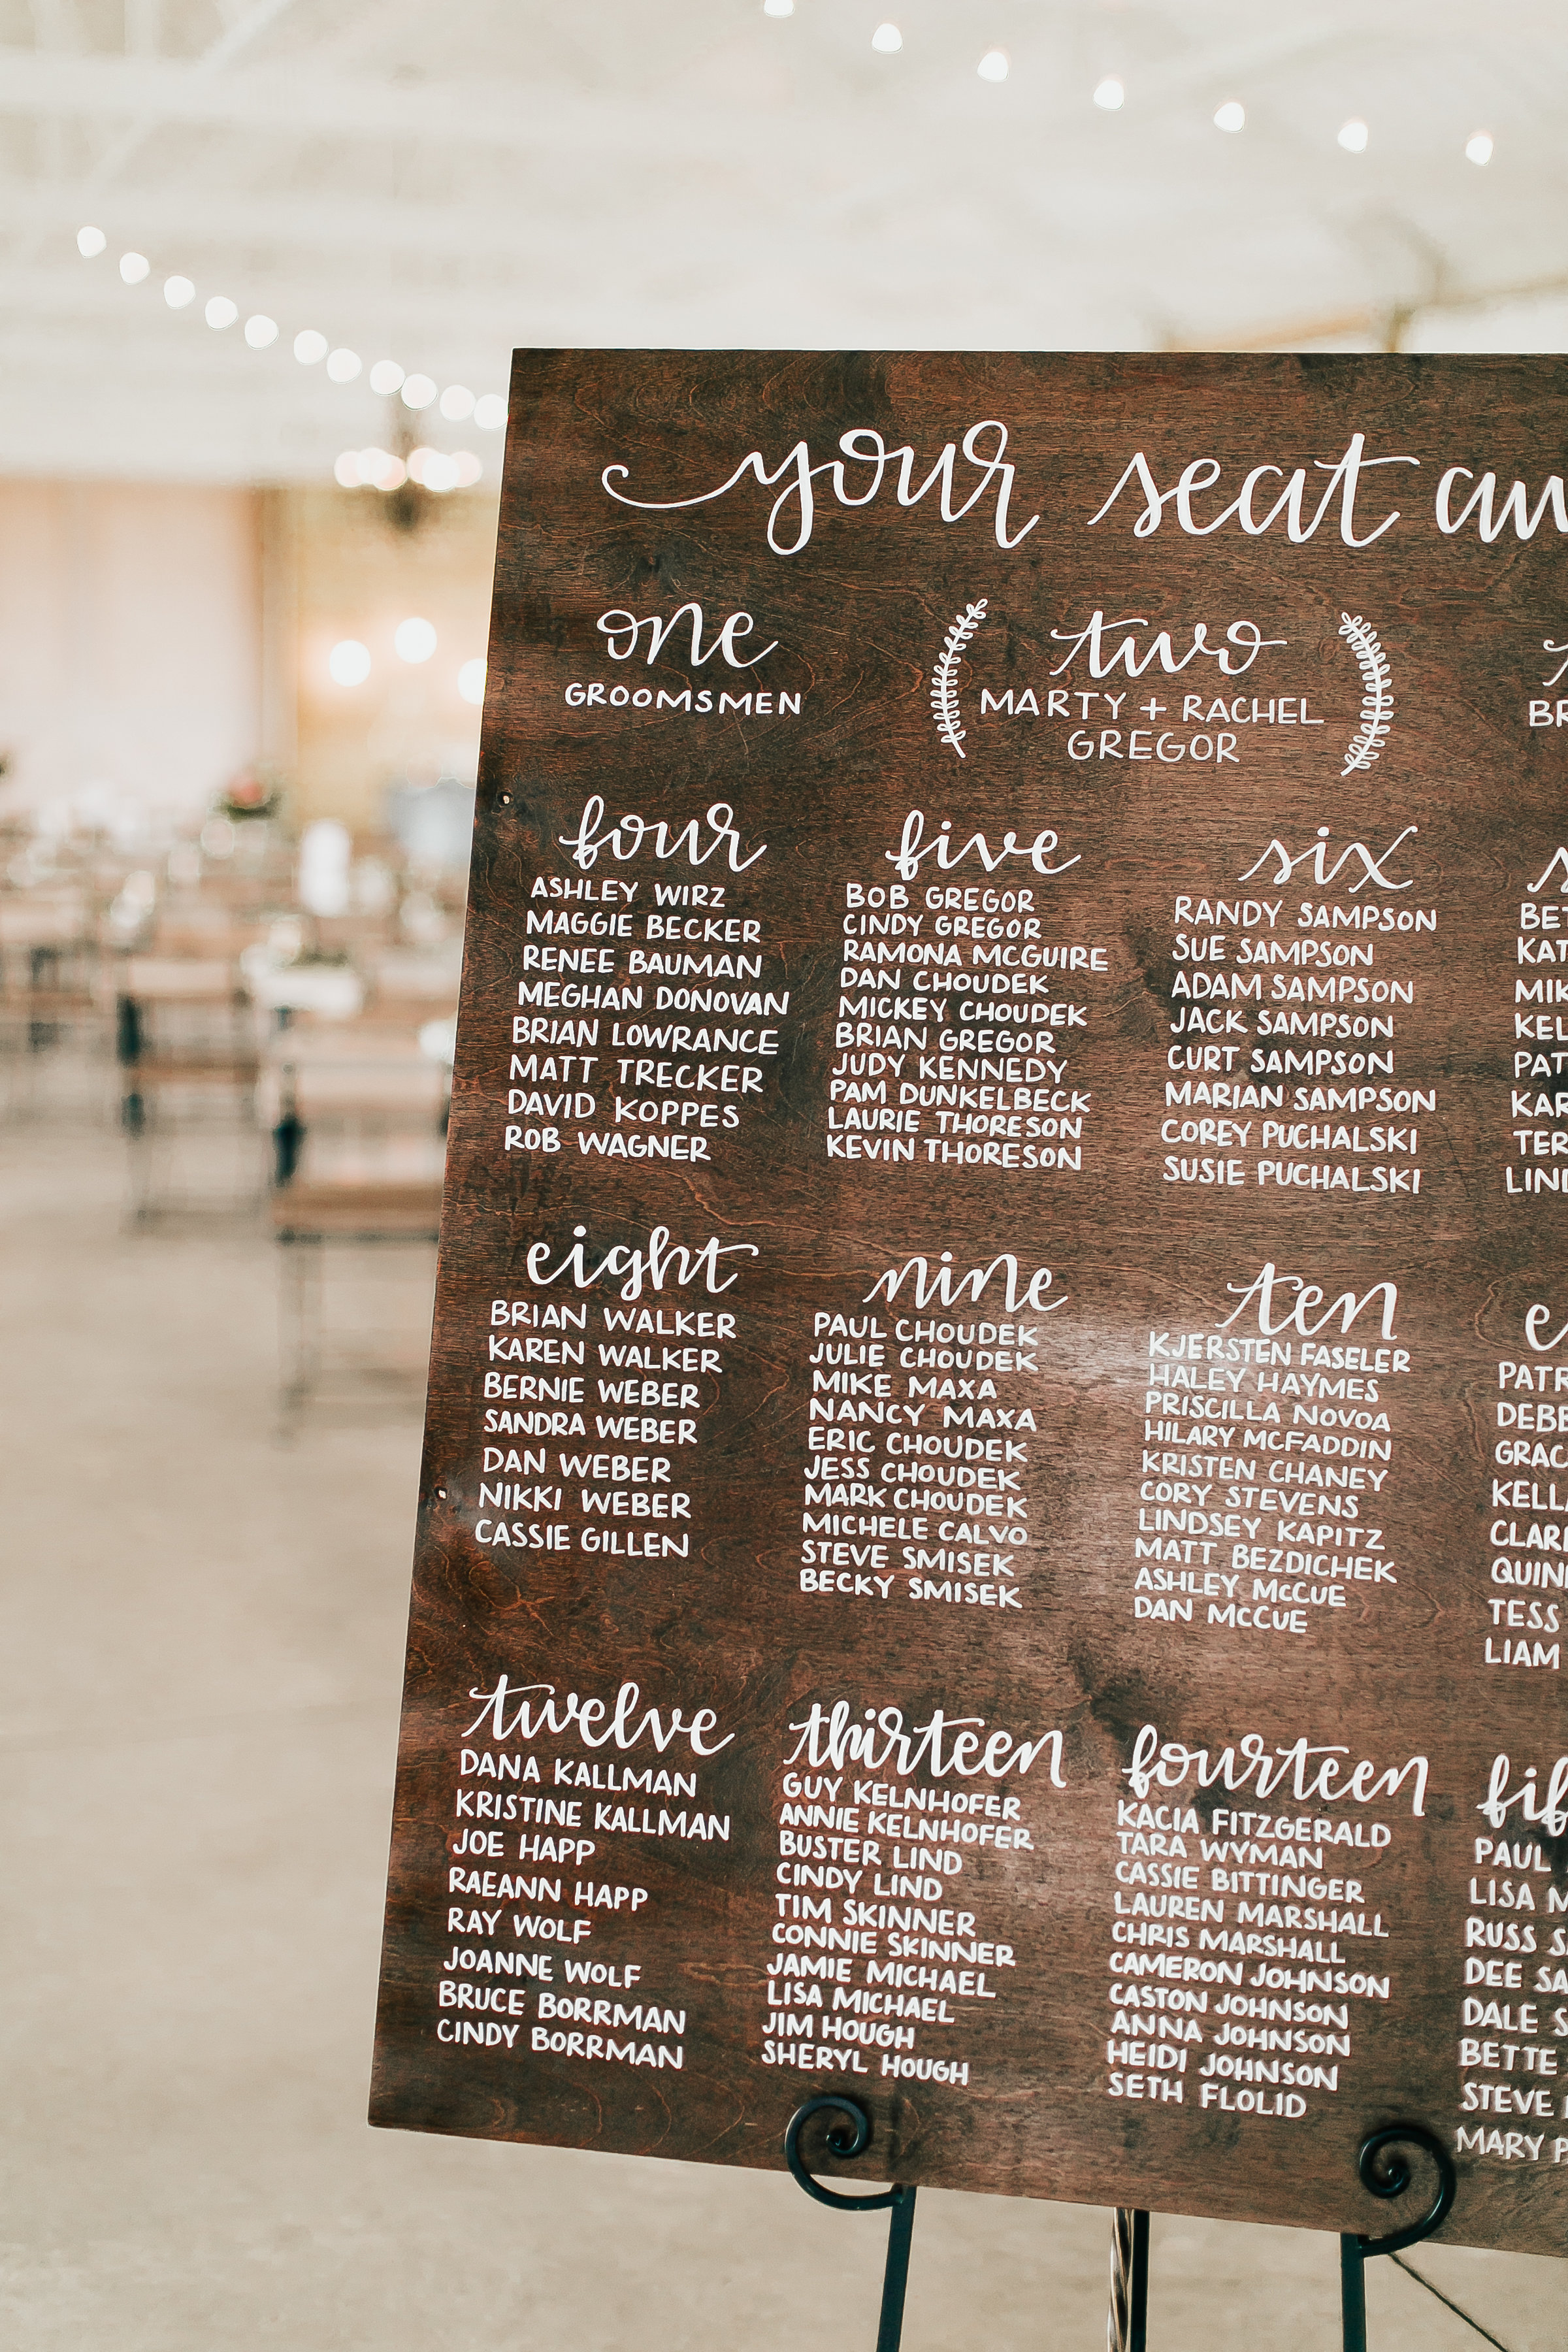 your seat
one
GROOMSMEN
two
MARTY + RACHEL
GREGOR
four
ASHLEY WIRZ
MAGGIE BECKER
RENEE BAUMAN
MEGHAN DONOVAN
BRIAN LOWRANCE
MATT TRECKER
DAVID KOPPES
ROB WAGNER
five
BOB GREGOR
CINDY GREGOR
RAMONA MCGUIRE
DAN CHOUDEK
MICKEY CHOUDEK
BRIAN GREGOR
JUDY KENNEDY
PAM DUNKELBECK
LAURIE THORESON
KEVIN THORESON
six
RANDY SAMPSON
SUE SAMPSON
ADAM SAMPSON
JACK SAMPSON
CURT SAMPSON
MARIAN SAMPSON
COREY PUCHALSKI
SUSIE PUCHALSKI
eight
BRIAN WALKER
KAREN WALKER
BERNIE WEBER
SANDRA WEBER
DAN WEBER
NIKKI WEBER
CASSIE GILLEN
nine
PAUL CHOUDEK
JULIE CHOUDEK
MIKE MAXA
NANCY MAXA
ERIC CHOUDEK
JESS CHOUDEK
MARK CHOUDEK
MICHELE CALVO
STEVE SMISEK
BECKY SMISEK
ten
KJERSTEN FASELER
HALEY HAYMES
PRISCILLA NOVOA
HILARY MCFADDIN
KRISTEN CHANEY
CORY STEVENS
LINDSEY KAPITZ
MATT BEZDICHEK
ASHLEY MCCUE
DAN MCCUE
TESS
LIAM
twelve
DANA KALLMAN
KRISTINE KALLMAN
JOE HAPP
RAEANN HAPP
RAY WOLF
JOANNE WOLF
BRUCE BORRMAN
CINDY BORRMAN
thirteen
GUY KELNHOFER
ANNIE KELNHOFER
BUSTER LIND
CINDY LIND
TIM SKINNER
CONNIE SKINNER
JAMIE MICHAEL
LISA MICHAEL
JIM HOUGH
SHERYL HOUGH
fourteen
KACIA FITZGERALD
TARA WYMAN
CASSIE BITTINGER
LAUREN MARSHALL
CHRIS MARSHALL
CAMERON JOHNSON
CASTON JOHNSON
ANNA JOHNSON
HEIDI JOHNSON
SETH FLOLID
PAUL
LISA
RUSS
DEE
DALE
BETTE
STEVE
MARY